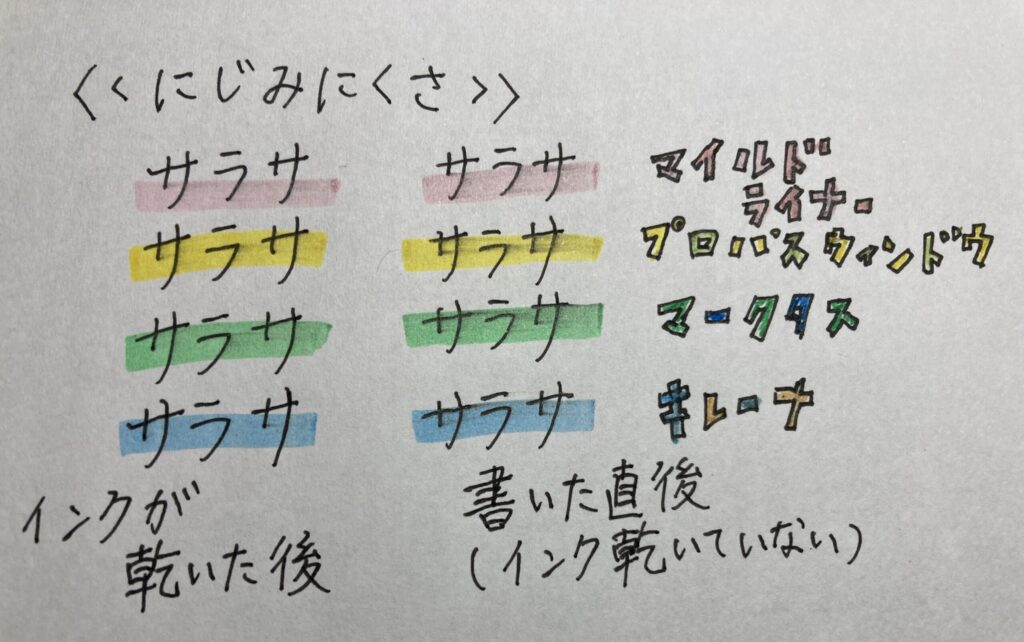 〈〈にじみにくさ〉〉
サラサ サラサ マイルド
ライナー
サラサ サラサ プロパスウィンドウ
サラサ サラサ マークタス
サラサ サラサ キレーナ
インクが
乾いた後
書いた直後
(インク乾いていない)